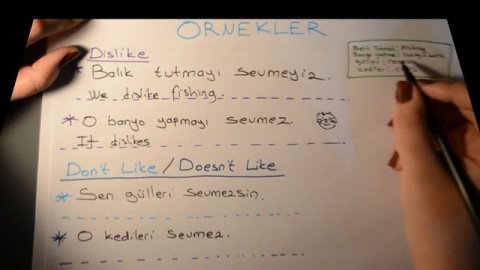 ÖRNEKLER
Dislike
* Balık tutmayı sevmeyiz.
We dislike fishing.
* O banyo yapmayı sevmez
It dislikes
Don't Like / Doesn't Like
* Sen gülleri sevmezsin.
* O kedileri sevmez.
Balık Tutmak: fishing
güller:
kediler: